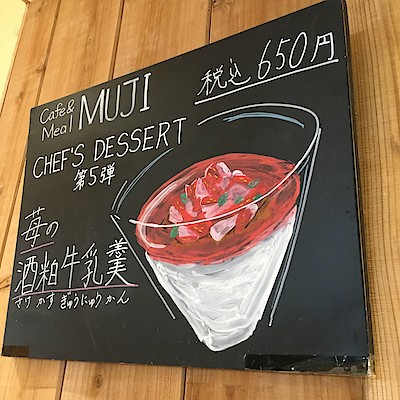 Cafe& Meal MUJI
税込 650円
CHEF'S DESSERT
第5弾
苺の
酒粕牛乳羹
さけかすぎゅうにゅうかん